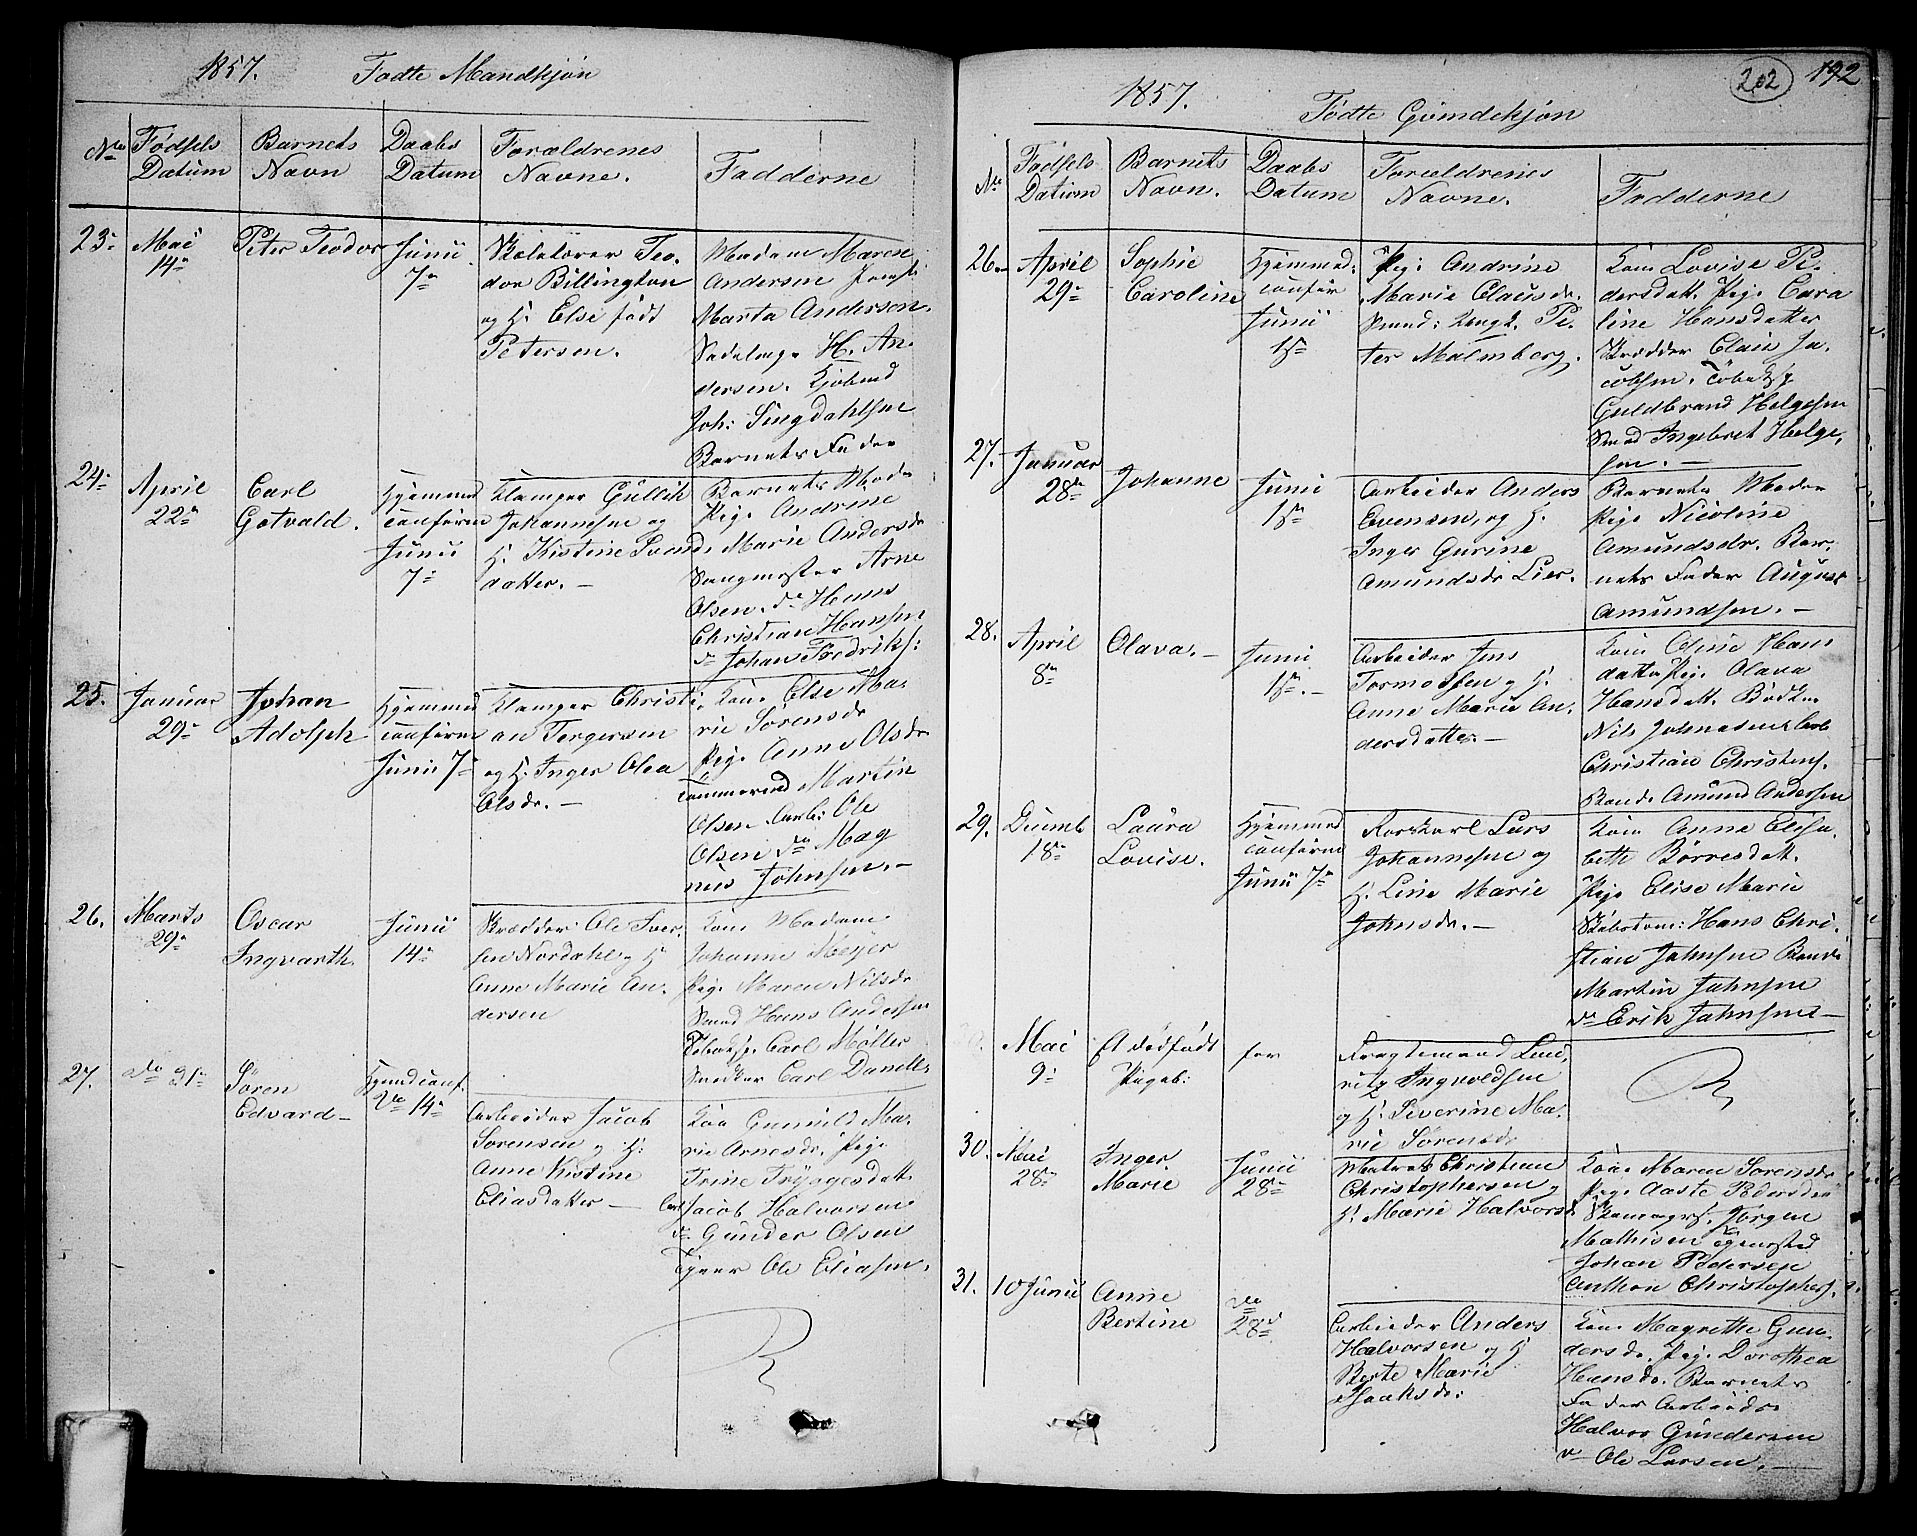 1857. Fødte Mandkjøn
No
Fødsels Datum
Barnets Navn
Daabs Datum
Forældrenes Navne.
Fadderne
23.
Mai
14.
Peter Teodor
Junii
7
Teo.
dor Billington
og H. Else født
Petersen.
Madam Maren
Andersen
Marta Andersen.
H. An
dersen. Kjøbmd
Joh: Singdahlsen
Barnets Fader
24.
April
22
Carl
Gotvald.
Hjemmed
confirm
Junii
7
Klamper Gullik
Johannesen og
H. Kistine Svend
datter.
Barnets Moder
Pige Andrine
Marie Andersdr
Sangmester Arne
Olsen. do Hans
Christian Hansen
do Johan Fredriks:
25.
Januar
29
Johan
Adolph
Hjemmed
confirm
Junii 7
Klamper Christi
an Tergersen
og H. Inger Olea
Olsdr.
Kone Else Ma
rie Sorensdr
Pige Anne Olsdr
Tømmermd Martin
Olsen Arb: Ole
Olsen do Mag
nus Johnsen.
26.
Marts
29
Oscar
Ingvarth
Junii
14
Skrædder Ole Iver
sen Nordahl og H
Anne Marie An.
dersen
Kone Madam
Johanne Meyer
Pige Maren Nilsdr
Smed Hans Andersen
Carl Møller
Snedker Carl Daniels
27.
do 31
Søren
Edvard
Hjemd conf.
do 14
Arbeider Jacob
Sorensen og H.
Anne Kistine
Eliasdatter
Kone Gunnild Ma.
rie Arnesdr. Pige
Trine Trygesdatt
Arb Jacob Halvorsen
do Gunder Olsen
Ole Eliasen.
202 192
1857. Fødte Qvindekjøn
No
Fødsels Datum
Barnets Navn.
Daabs Datum
Forældrenes Navne.
Fadderne
26.
April
29
Sophie
Caroline
Hjemmed.
confir
Junii
1
Pige Andrine
Marie Clausdr.
Smed: Pe.
ter Malmberg.
Kone Lovise Pe.
dersdatt. Pige Caro
line Hansdatter
Skrædder Claus Ja.
cobsen.
Guldbrand Helgesen
Smed Ingebret Helge.
sen.
27.
Januar
28
Johanne
Junii
1
Arbeider Anders
Evensen, og H.
Inger Gurine
Amundsdr Lier.
Barnets Moder
Pige Nicoline
Amundsdr. Bar.
nets Fader August
Amundsen.
28.
April
8
Olava.
Junii
1
Arbeider Jens
Tormodsen og H.
Anne Marie An.
dersdatter.
Kone Oline Hans
datter Pige Olava
Hansdatt. Bødker
Nils Johnasen Arb
Christian Christens.
Bonde Amund Andersen
29.
Decemb
18
Laura
Lovise.
Hjemmed
confirm
Junii 7
Lars
Johannesen og
H. Line Marie
Johnsdr.
Kone Anne Elisa.
beth Børresdatt.
Pige Elise Marie
Skibstøm: Hans Chri.
stian Johnsen Bonde
Martin Johnsen
do Erik Johnsen
Mai
9
Et dødfødt
Pigeb:
for
Fragtemand Lau
ritz Ingvoldsen
og H. Severine Ma.
rie Sørensdr
30.
Mai
28
Inger
Marie
Junii
28
Matros Christian
Christophersen og
H. Marie Halvorsd.
Kone Maren Sorensdr
Pige Aaste Pedersdr
Jørgen
Mathisen
Johan Pedersen
Anthon Christophers.
31.
10 Junii
Anne
Bertine
do
28
Arbeider Anders
Halvorsen og H
Berte Marie
Isaksdr:
Kone Magrethe Gun.
dersdr. Pige Dorothea
Hansdr. Barnets
Fader Arbeider
Halvor Gundersen
do Ole Larsen.